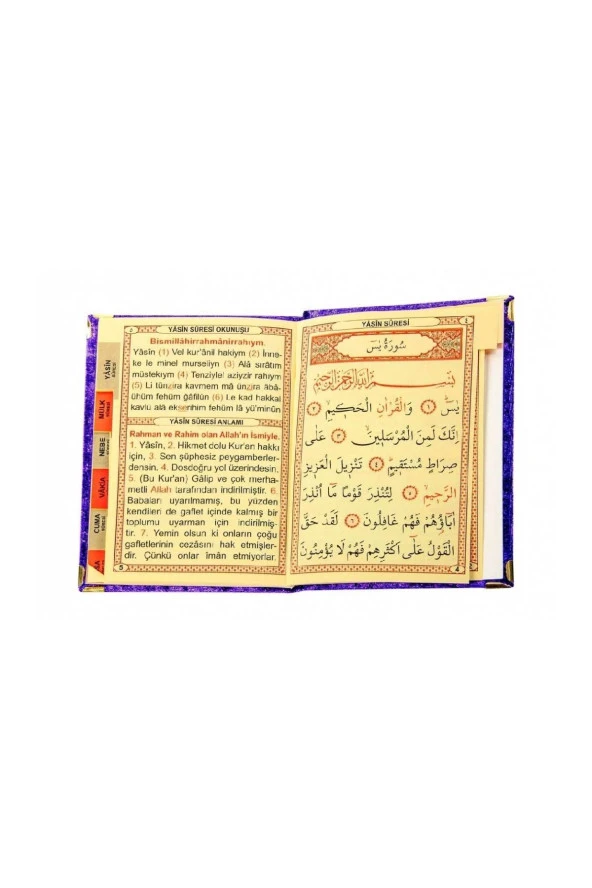 YÂSÎN SÛRESİ OKUNUŞU
Bismillâhirrahmânirrahıym.
Yâsîn (1) Vel kur'ânil hakiym (2) İnne-
ke le minel murseliyn (3) Alâ sırâtım
müstekıym (4) Tenziylel aziyzir rahıym
(5) Li tünzira kavmem mâ ünzira âbâ-
ühüm fehüm ğâfilûn (6) Le kad hakkal
kavlu alâ ekserihim fehüm lâ yü'minûn
YÂSÎN SÛRESİ ANLAMI
Rahman ve Rahim olan Allah'ın İsmiyle.
1. Yâsîn, 2. Hikmet dolu Kur'an hakkı
için, 3. Sen şüphesiz peygamberler-
densin. 4. Dosdoğru yol üzerindesin.
5. (Bu Kur'an) Gâlip ve çok merha-
metli Allah tarafından indirilmiştir. 6.
Babaları uyarılmamış, bu yüzden
kendileri de gaflet içinde kalmış bir
toplumu uyarman için indirilmiş-
tir. 7. Yemin olsun ki onların çoğu
gafletlerinin cezâsını hak etmişler-
dir. Çünkü onlar îmân etmiyorlar.
5
YÂSÎN
MÜLK
NEBE
VÂKIA
CUMA
YÂSÎN SÛRESİ
سُورَةُ يٰسٓ
بِسْمِ اللّٰهِ الرَّحْمٰنِ الرَّحِيمِ
يٰسٓ ﴿١﴾ وَالْقُرْاٰنِ الْحَكِيمِ ﴿٢﴾
اِنَّكَ لَمِنَ الْمُرْسَلِينَ ﴿٣﴾ عَلٰى
صِرَاطٍ مُسْتَقِيمٍ ﴿٤﴾ تَنْزِيلَ الْعَزِيزِ
الرَّحِيمِ ﴿٥﴾ لِتُنْذِرَ قَوْمًا مَٓا اُنْذِرَ
اٰبَٓاؤُهُمْ فَهُمْ غَافِلُونَ ﴿٦﴾ لَقَدْ حَقَّ
الْقَوْلُ عَلٰٓى اَكْثَرِهِمْ فَهُمْ لَا يُؤْمِنُونَ
4